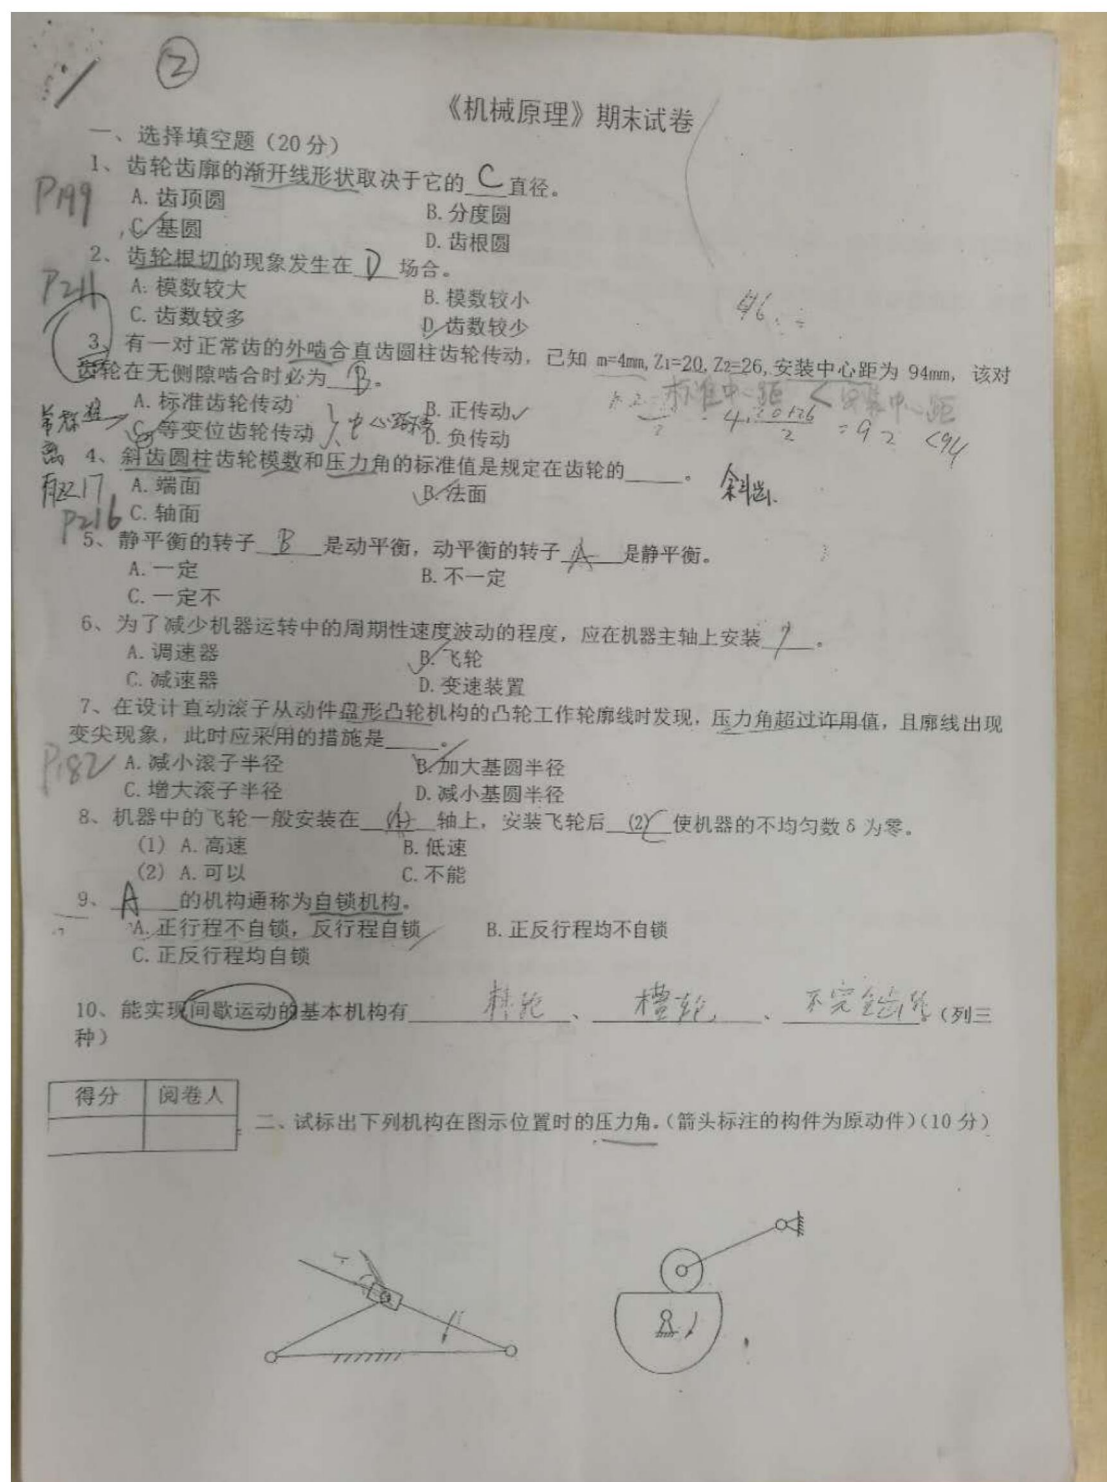 ②
《机械原理》期末试卷
一、选择填空题（20分）
1、齿轮齿廓的渐开线形状取决于它的 C 直径。
P199
A. 齿顶圆 B. 分度圆
C. 基圆 D. 齿根圆
2、齿轮根切的现象发生在 D 场合。
P211
A. 模数较大 B. 模数较小
C. 齿数较多 D. 齿数较少
46
3、有一对正常齿的外啮合直齿圆柱齿轮传动，已知 m=4mm,Z1=20,Z2=26,安装中心距为 94mm，该对
齿轮在无侧隙啮合时必为 B 。
标准中心距 < 安装中心距
A. 标准齿轮传动 B. 正传动
4·20+26/2 =92 <94
C. 等变位齿轮传动 D. 负传动
4、斜齿圆柱齿轮模数和压力角的标准值是规定在齿轮的____。
斜齿
A. 端面 B. 法面
P216
C. 轴面
5、静平衡的转子 B 是动平衡，动平衡的转子 A 是静平衡。
A. 一定 B. 不一定
C. 一定不
6、为了减少机器运转中的周期性速度波动的程度，应在机器主轴上安装____。
A. 调速器 B. 飞轮
C. 减速器 D. 变速装置
7、在设计直动滚子从动件盘形凸轮机构的凸轮工作轮廓线时发现，压力角超过许用值，且廓线出现
变尖现象，此时应采用的措施是____。
P182
A. 减小滚子半径 B. 加大基圆半径
C. 增大滚子半径 D. 减小基圆半径
8、机器中的飞轮一般安装在 (1) 轴上，安装飞轮后 (2) C 使机器的不均匀数 δ 为零。
(1) A. 高速 B. 低速
(2) A. 可以 C. 不能
9、 A 的机构通称为自锁机构。
A. 正行程不自锁，反行程自锁 B. 正反行程均不自锁
C. 正反行程均自锁
10、能实现间歇运动的基本机构有 棘轮 、 槽轮 、 不完全齿轮 (列三
种)
得分 阅卷人
二、试标出下列机构在图示位置时的压力角。(箭头标注的构件为原动件)(10 分)